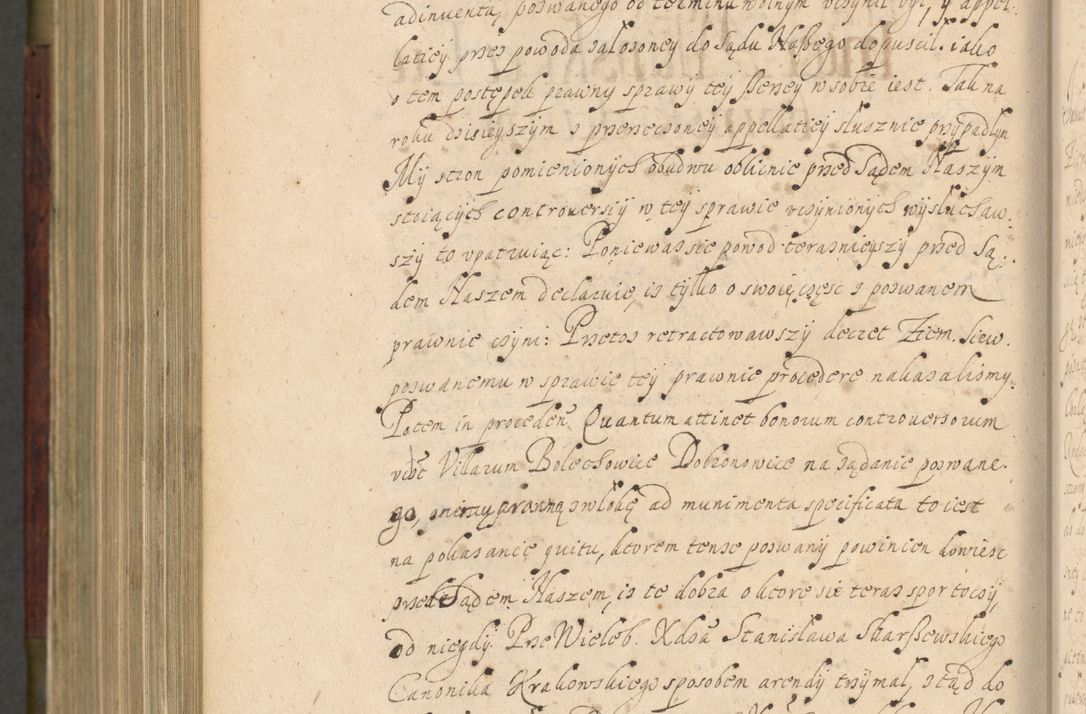 adinuentą, poswanego od terminu wolnym vczynił był, y appel-
latiey przes powoda założoney do Sądu Naszego dopuscił. iako
o tem postępek prawny sprawy tey szerzey w sobie iest. Tak na
roku dzisieyszym z przerzeczoney appellatiey slusznie przypadłym
My stron pomienionych obudwu oblicnie przed Sądem Naszym
stoiących controuersiy w tey sprawie vczynionych wysluchaw-
szy to vpatruiąc: Poniewasz sie powod teraznieyszy przed Są-
dem Naszem declaruie, is tylko o swoię częsc z poswanem
prawnie czyni: Przetos retractowawszy decret Ziem. Siew.
poswanemu w sprawie tey prawnie procedere nakazalismy.
Potem in proceden̄ Quantum attinet bonorum controuersorum
vidt Villarum Bolechowice Dobronowice na ządanie poswane-
go, zwlokę ad munimenta specificata to iest
na pokazanie quitu, ktorem tense poswany powinien dowiesc
przed Sądem Naszem, is te dobra o ktore sie teras spor toczy,
od niegdy Prze Wieleb. Xdza Stanisława Skarszewskiego
Canonika Krakowskiego sposobem arendy trzymał, ztąd do